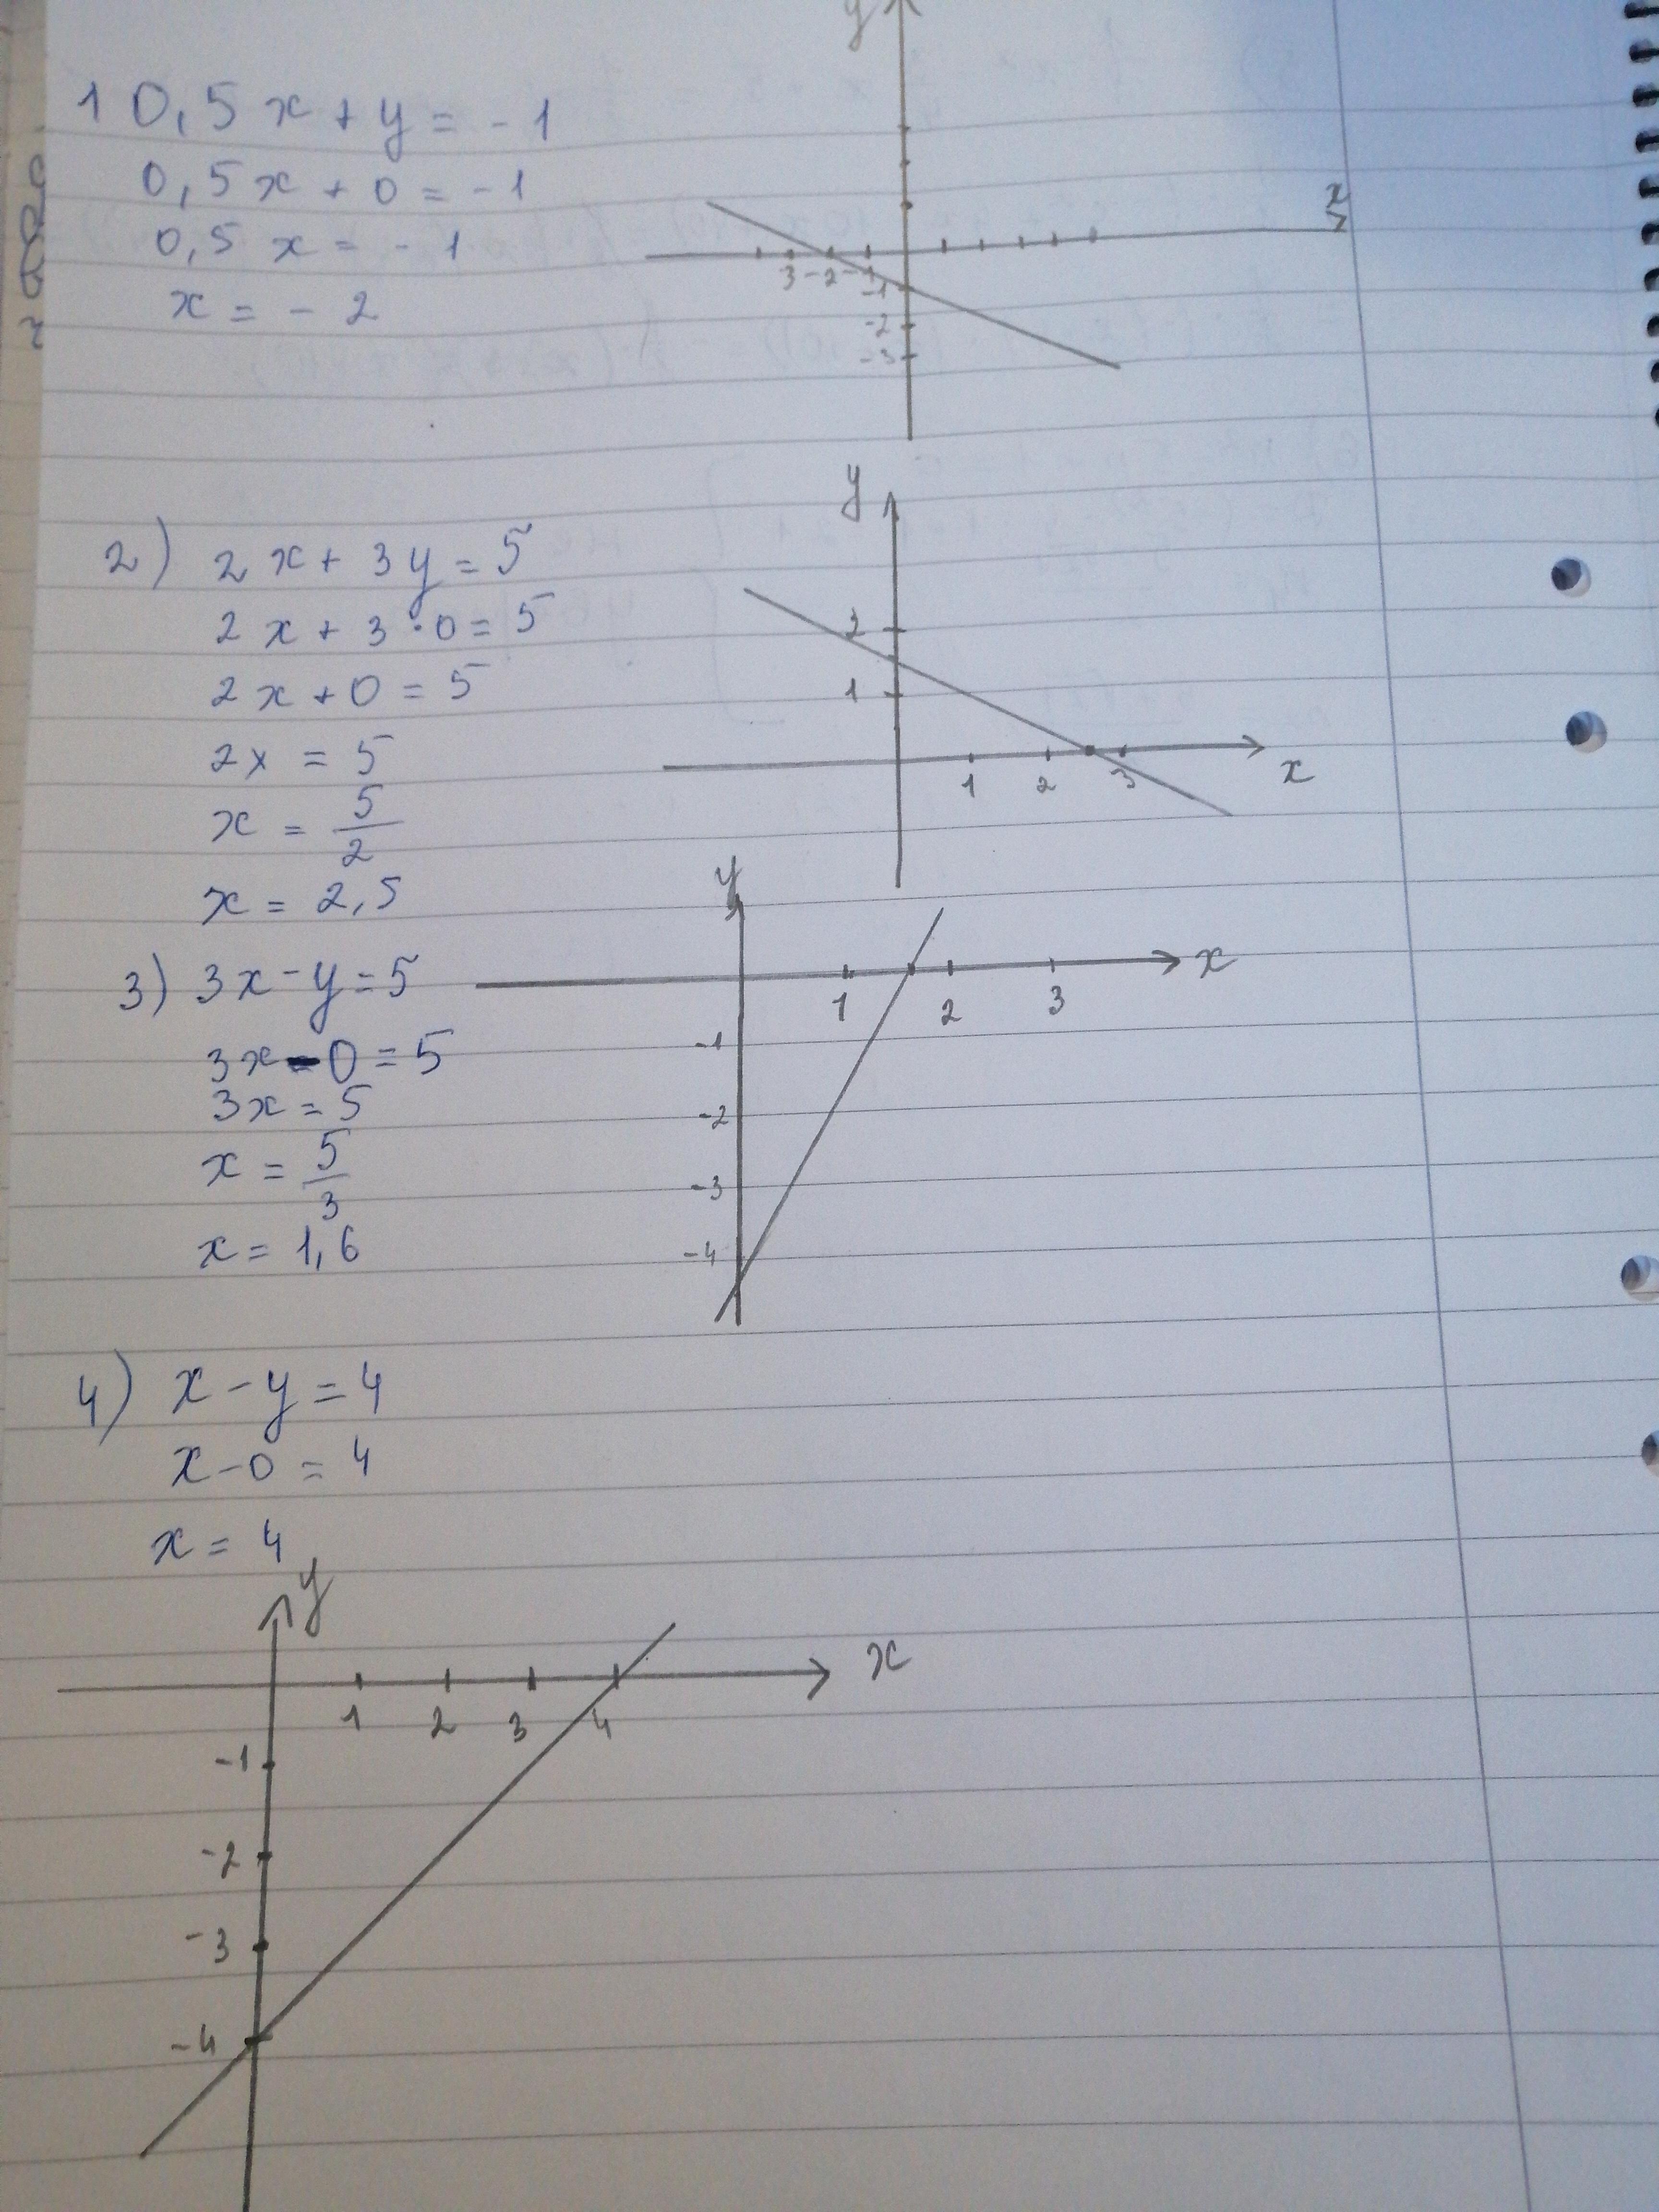 1 0,5x + y = -1
0,5x + 0 = -1
0,5x = -1
x = -2
y
x
3 -2 -1
-1
-2
-3
2) 2x + 3y = 5
2x + 3·0 = 5
2x + 0 = 5
2x = 5
x = 5/2
x = 2,5
y
2
1
1 2 3
x
3) 3x - y = 5
3x - 0 = 5
3x = 5
x = 5/3
x = 1,6
y
x
1 2 3
-1
-2
-3
-4
4) x - y = 4
x - 0 = 4
x = 4
y
x
1 2 3 4
-1
-2
-3
-4